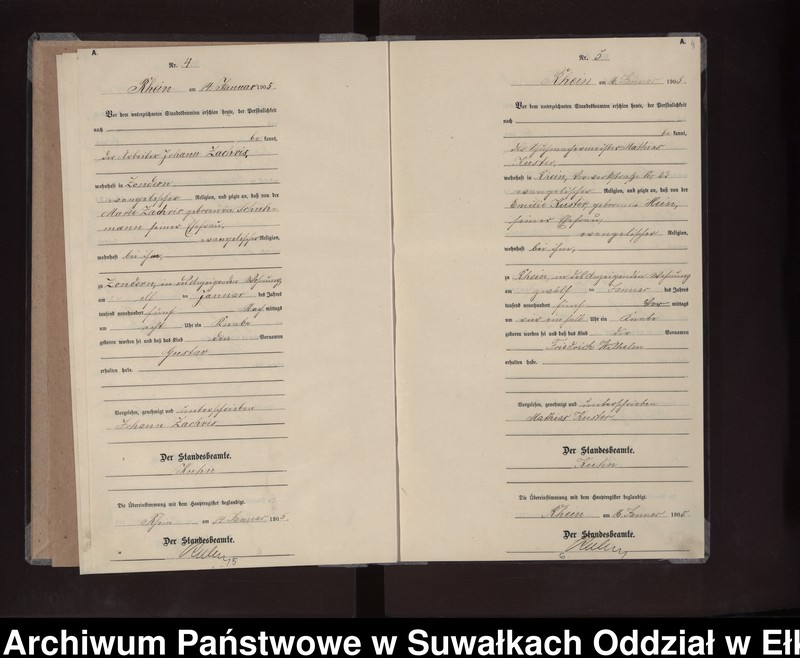 A.
Nr. 4
Rhein am 14. Januar 1905.
Vor dem unterzeichneten Standesbeamten erschien heute, der Persönlichkeit
nach
be kannt,
der Arbeiter Johann Zachris,
wohnhaft in
evangelischer Religion, und zeigte an, daß von der
Marie Zachris geborenen
mann seiner Ehefrau,
evangelischer Religion,
wohnhaft bei ihm,
zu in Wohnung,
am elf ten Januar des Jahres
tausend neunhundert fünf Nach mittags
um acht Uhr ein Knabe
geboren worden sei und daß das Kind den Vornamen
Gustav
erhalten habe.
Vorgelesen, genehmigt und unterschrieben
Johann Zachris
Der Standesbeamte.
Kuhn
Die Übereinstimmung mit dem Hauptregister beglaubigt.
Rhein am 14. Januar 1905.
Der Standesbeamte.
Kuhn
5
A.
Nr. 5
Rhein am 16. Januar 1905.
Vor dem unterzeichneten Standesbeamten erschien heute, der Persönlichkeit
nach
be kannt,
der Mathias
Kuster,
wohnhaft in Rhein, Nr.
evangelischer Religion, und zeigte an, daß von der
Emilie Kuster, geborenen Hein,
seiner Ehefrau,
evangelischer Religion,
wohnhaft bei ihm,
zu Rhein, in Wohnung
am zwölf ten Januar des Jahres
tausend neunhundert fünf Vor mittags
um Uhr ein Knabe
geboren worden sei und daß das Kind die Vornamen
Friedrich Wilhelm
erhalten habe.
Vorgelesen, genehmigt und unterschrieben
Mathias Kuster
Der Standesbeamte.
Kuhn
Die Übereinstimmung mit dem Hauptregister beglaubigt.
Rhein am 16. Januar 1905
Der Standesbeamte.
Kuhn
6
Archiwum Państwowe w Suwałkach Oddział w Eł